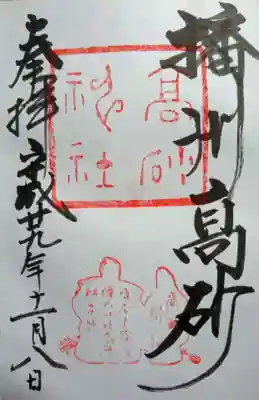 播州高砂
高砂
神社
奉拝 平成廿九年十一月八日